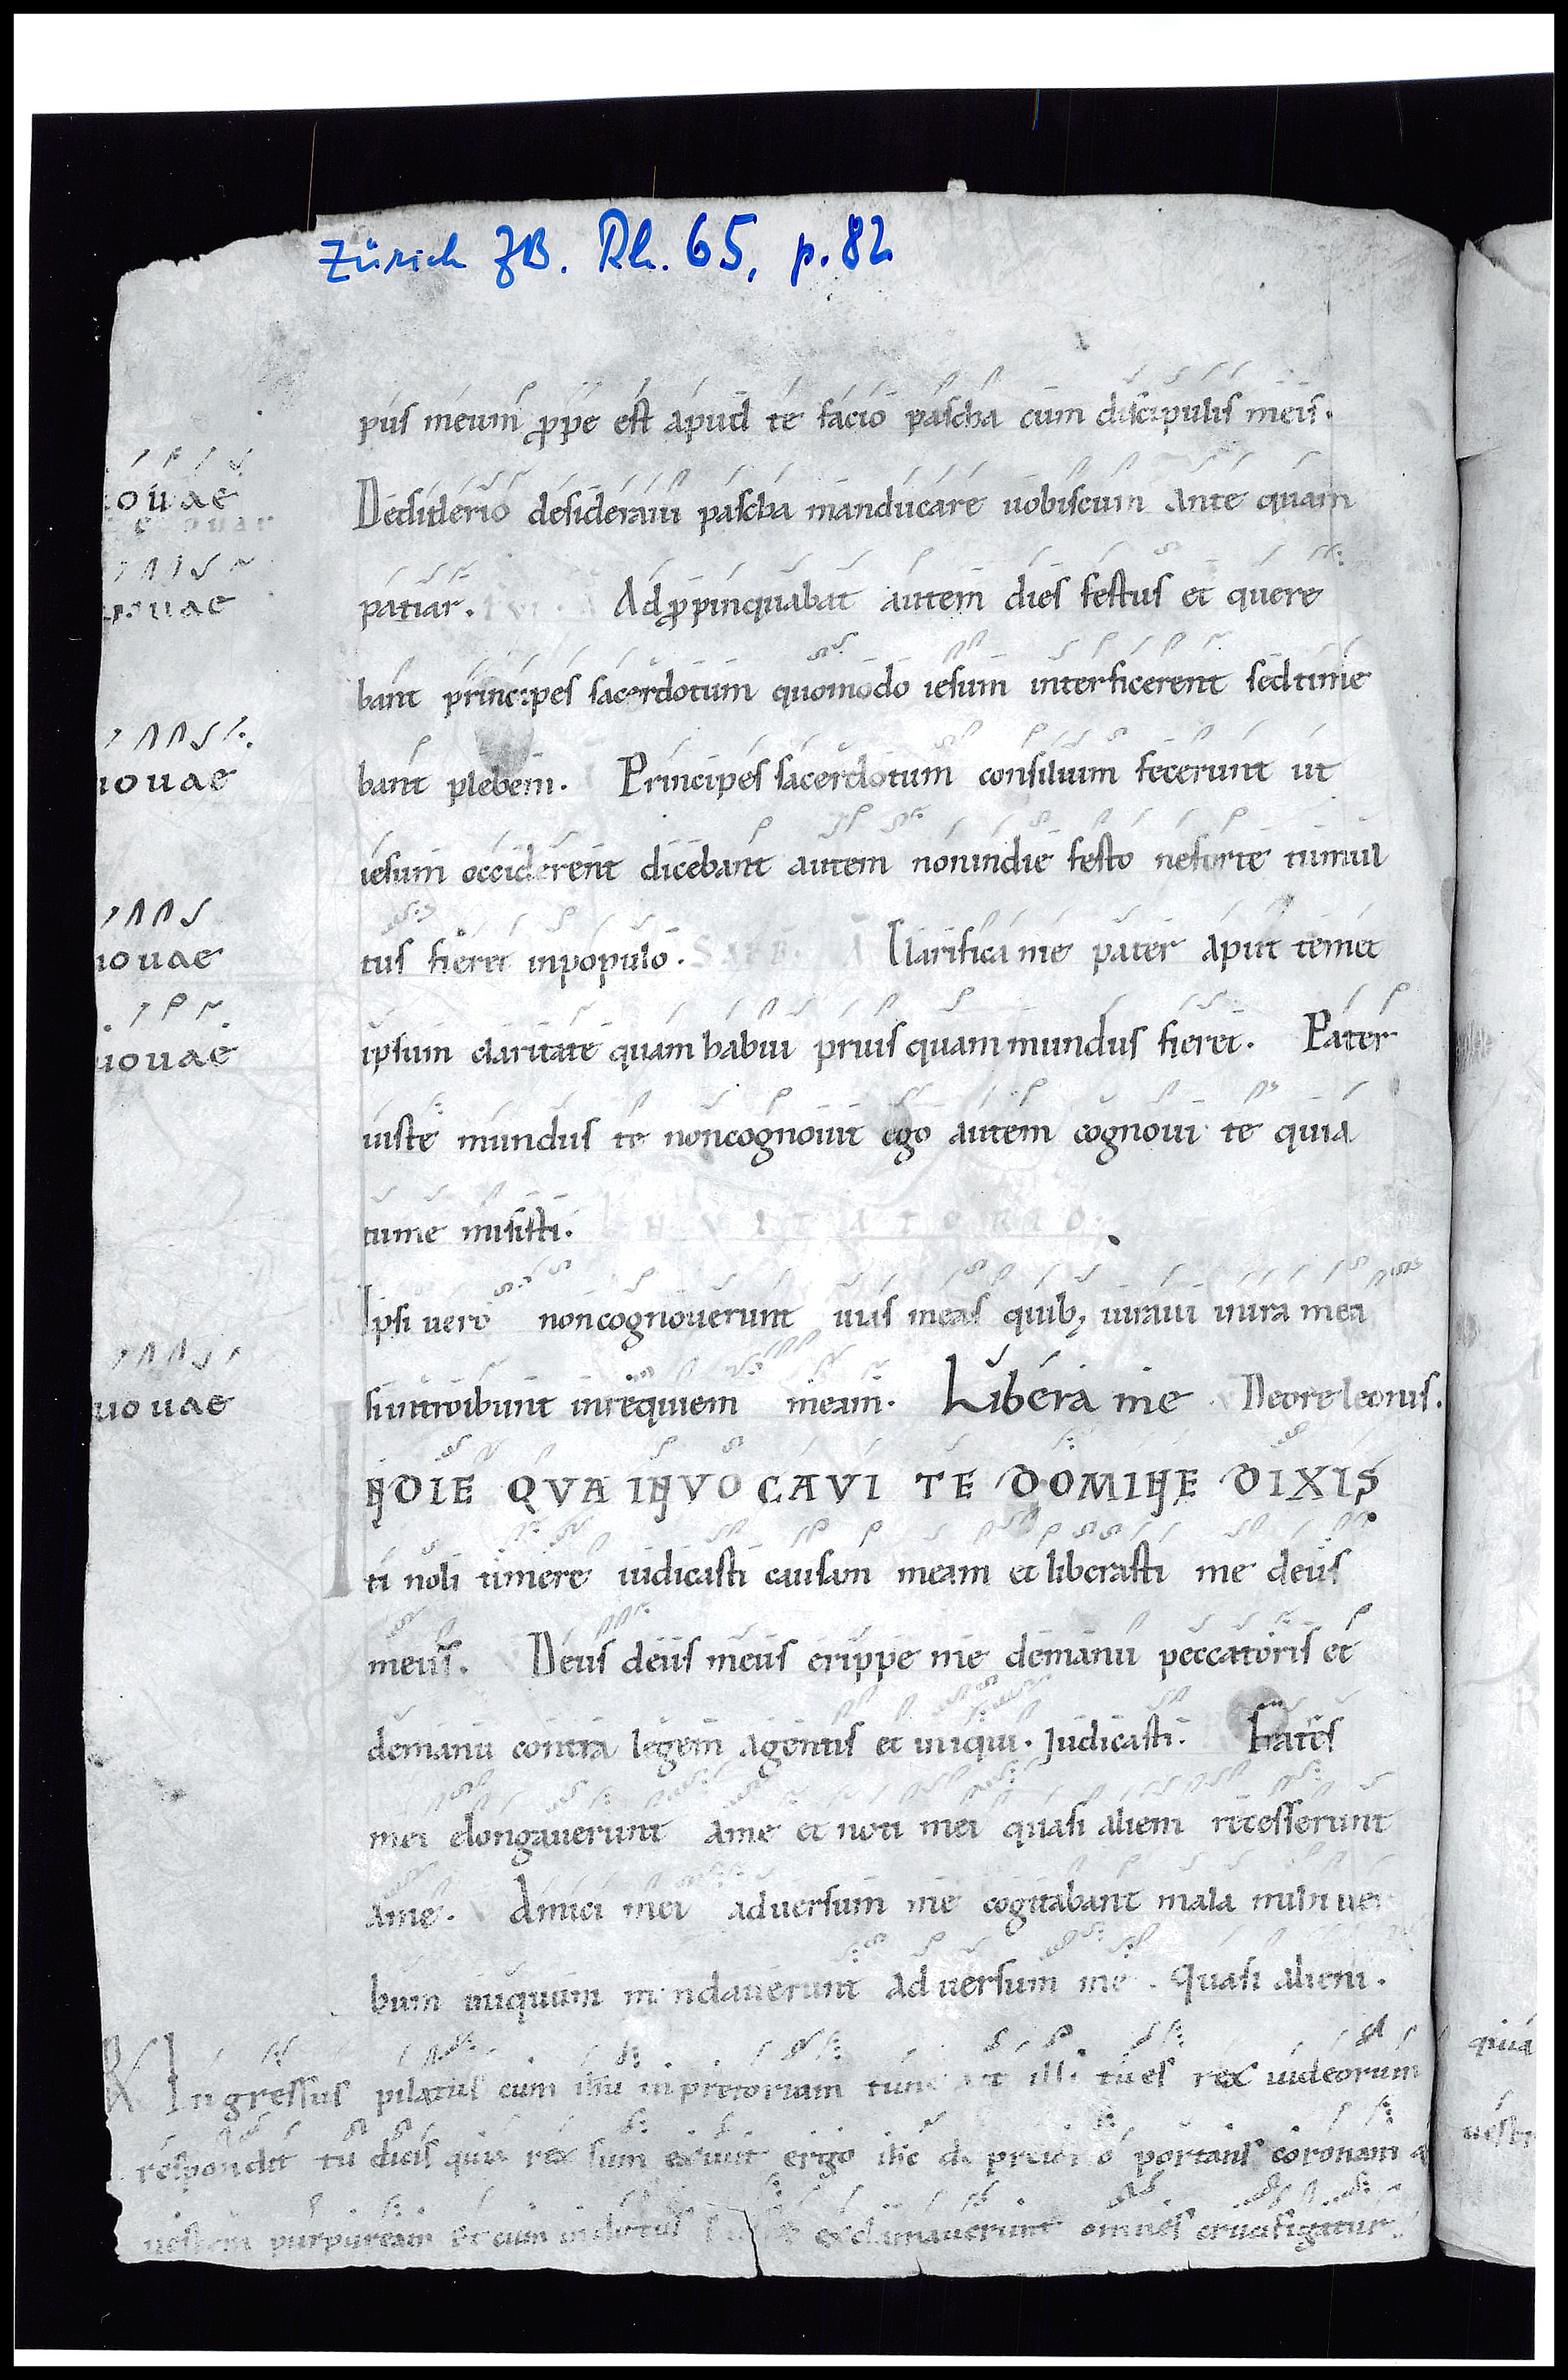 Zürich ZB. Rh. 65, p. 82
pus meum ppe est apud te facio pascha cum discipulis meis.
ouae
Desiderio desideraui pascha manducare uobiscum ante quam
uouae
patiar. Adppinquabat autem dies festus et quere
bant principes sacerdotum quomodo iesum interficerent sed time
uouae
bant plebem. Principes sacerdotum consilium fecerunt ut
iesum occiderent dicebant autem non indie festo neforte tumul
uouae
tus fieret inpopulo. Clarifica me pater aput temet
uouae
ipsum claritate quam habui prius quam mundus fieret. Pater
iuste mundus te noncognouit ego autem cognoui te quia
tume misisti. INVITATORIO
Ipsi uero noncognouerunt uias meas quib; iuraui inira mea
uouae
siintroibunt inrequiem meam. Libera me Deore leonis.
INDIE QVA INVOCAVI TE DOMINE DIXIS
ti noli timere iudicasti causam meam et liberasti me deus
meus. Deus deus meus erippe me demanu peccatoris et
demanu contra legem agentis et iniqui. Iudicasti. Fratres
mei elongauerunt ame et noti mei quasi alieni recesserunt
ame. Amici mei aduersum me cogitabant mala mihi uer
bum iniquum mandauerunt aduersum me. Quasi alieni.
R Ingressus pilatus cum ihu in pretorium tunc ait illi tu es rex iudeorum
respondit tu dicis quia rex sum exiuit ergo ihc de pretorio portans coronam
uestem purpuream et cum exclamauerunt omnes crucifigatur.
quia